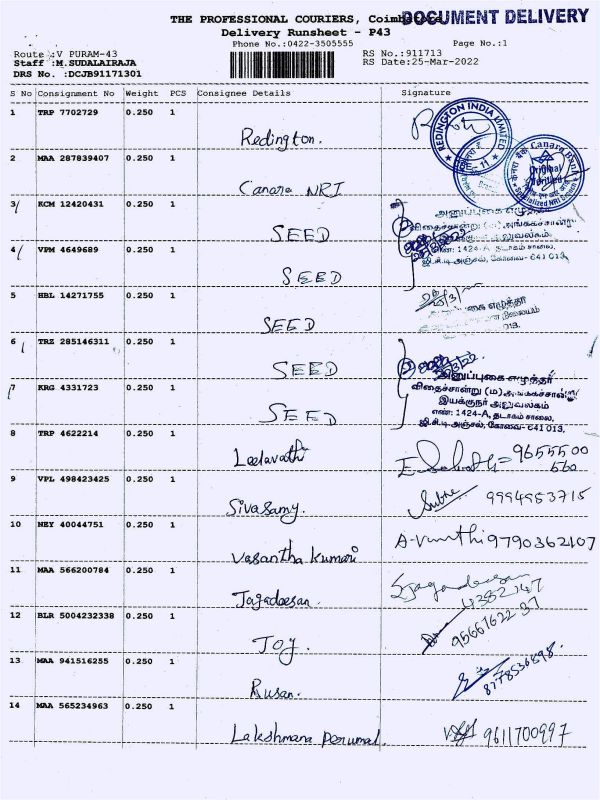 THE PROFESSIONAL COURIERS, Coimbatore
DOCUMENT DELIVERY
Delivery Runsheet - P43
Phone No.:0422-3505555
Page No.:1
Route :V PURAM-43
RS No.:911713
Staff :M.SUDALAIRAJA
RS Date:25-Mar-2022
DRS No. :DCJB91171301
S No Consignment No Weight PCS Consignee Details Signature
1 TRP 7702729 0.250 1
Redington.
REDINGTON INDIA LIMITED
2 MAA 287839407 0.250 1
Canara NRI
Canara Bank
Original Verified
Specialized NRI Section
3 KCM 12420431 0.250 1
SEED
அனுப்புகை எழுத்தர்
விதைச்சான்று (ம) அங்ககச்சான்று
எண்: 1424-A, தடாகம் சாலை,
ஜி.சி.டி அஞ்சல், கோவை- 641 013.
4 VPM 4649689 0.250 1
SEED
5 HBL 14271755 0.250 1
SEED
எழுத்தர்
6 TRZ 285146311 0.250 1
SEED
அனுப்புகை எழுத்தர்
விதைச்சான்று (ம) அங்ககச்சான்று
இயக்குநர் அலுவலகம்
எண்: 1424-A, தடாகம் சாலை,
ஜி.சி.டி அஞ்சல், கோவை- 641 013.
7 KRG 4331723 0.250 1
SEED
8 TRP 4622214 0.250 1
Leelavathi
9655500
560
9 VPL 498423425 0.250 1
Sivasamy.
9994953715
10 NEY 40044751 0.250 1
Vasantha Kumari
9790362107
11 MAA 566200784 0.250 1
Jagadeesan.
Sjagadeesan
12 BLR 5004232338 0.250 1
Joy.
9566162237
13 MAA 941516255 0.250 1
Rusan.
8778536898.
14 MAA 565234963 0.250 1
Lakshmana Perumal.
9611700997